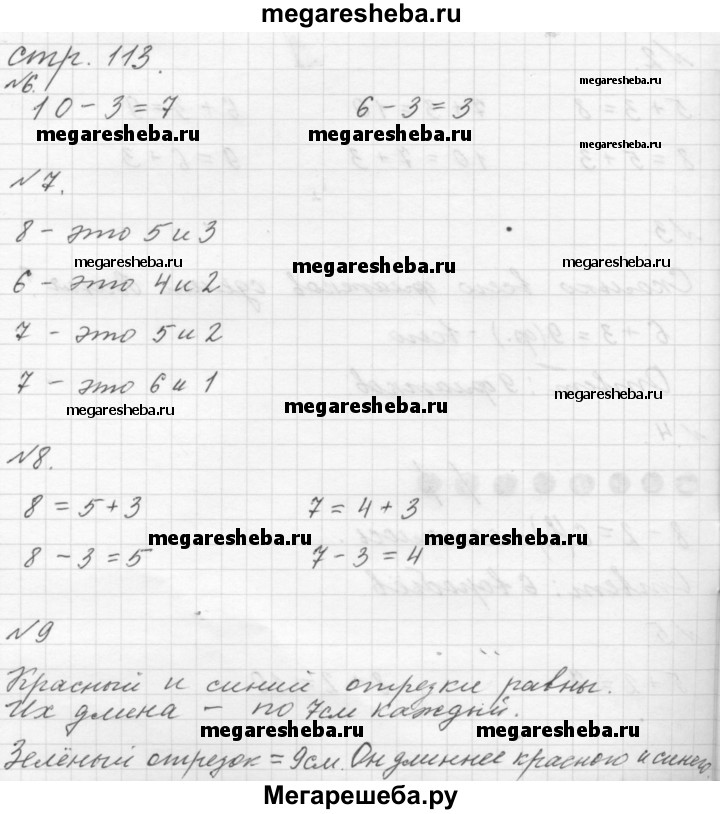 megaresheba.ru
стр. 113.
№6.
megaresheba.ru
10 - 3 = 7 6 - 3 = 3
megaresheba.ru megaresheba.ru megaresheba.ru
№7.
8 - это 5 и 3
megaresheba.ru megaresheba.ru megaresheba.ru
6 - это 4 и 2
7 - это 5 и 2
7 - это 6 и 1
megaresheba.ru megaresheba.ru megaresheba.ru
№8.
8 = 5 + 3 7 = 4 + 3
megaresheba.ru megaresheba.ru
8 - 3 = 5 7 - 3 = 4
№9
Красный и синий отрезки равны.
Их длина - по 7см каждый.
megaresheba.ru megaresheba.ru
Зелёный отрезок = 9см. Он длиннее красного и синего.
Мегарешеба.ру